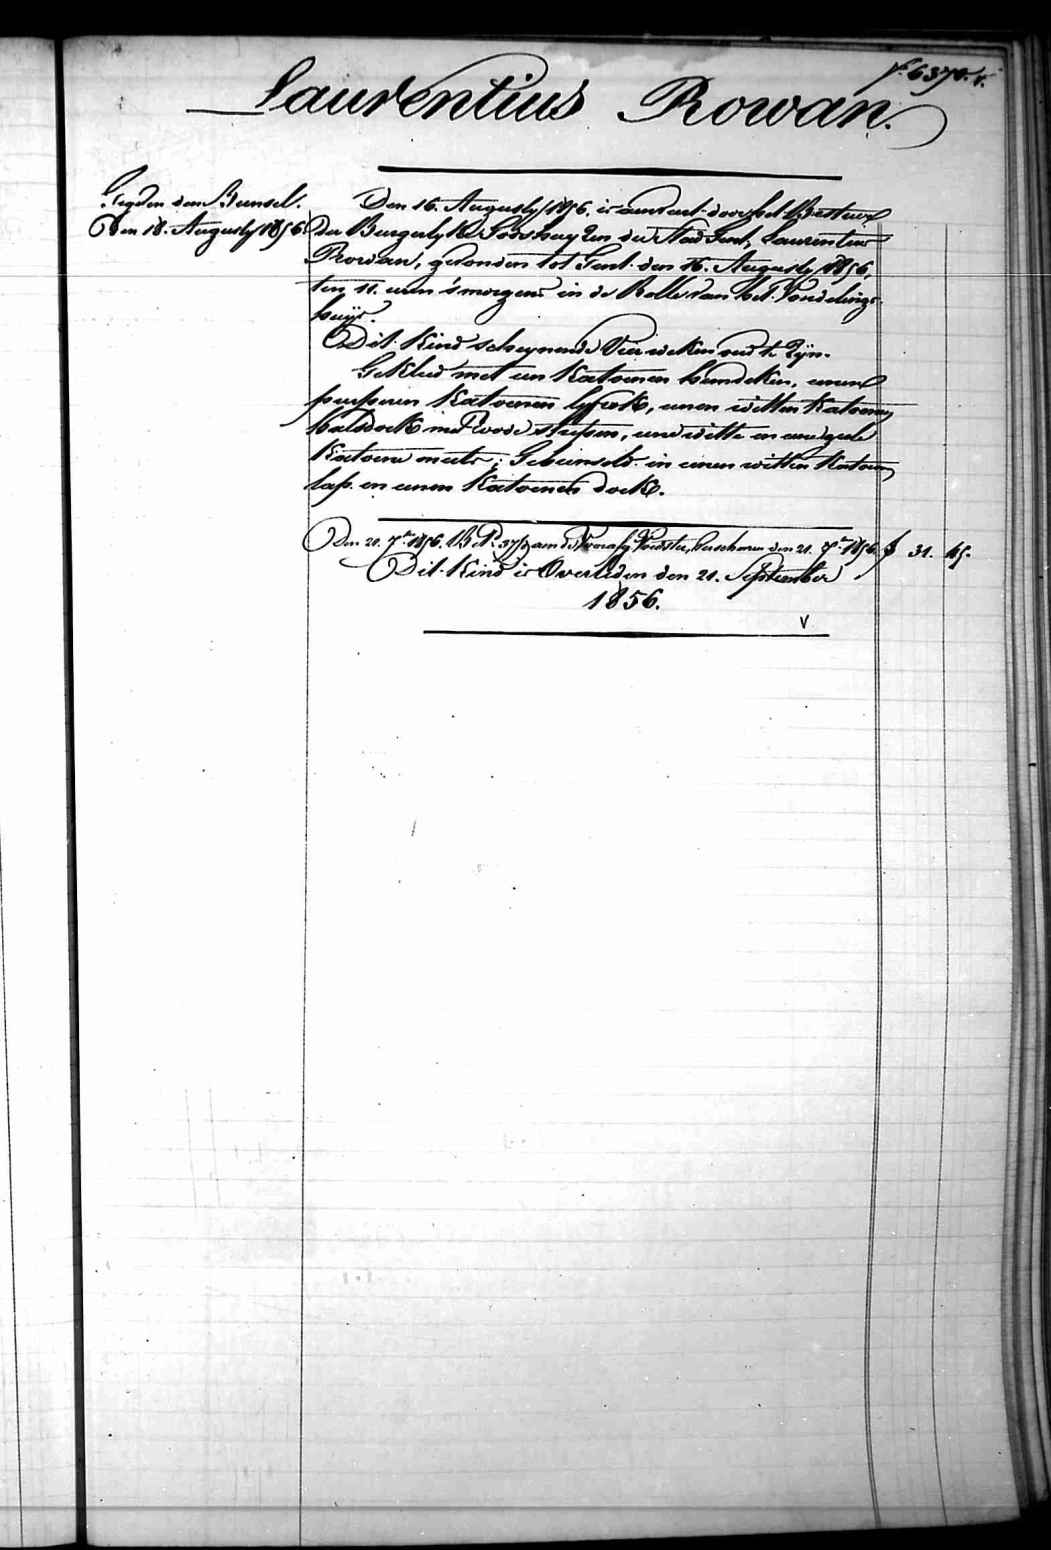 Laurentius Rowan.
Den 18. Augusty 1856.
Den 16. Augusty 1856, is aenveert door het Bestuer
der Burgerlyke Godshuyzen der Stad Gent, Laurentius
Rowan, gevonden tot Gent den 16. Augusty 1856,
ten 11. uren 's morgens in de Rolle van het Vondelings-
huys.
Dit Kind schynende Vier weken oud te Zyn.
Gekleed met een Katoenen hemdeken, eenen
purperen Katoenen lyfrok, eenen witten Katoenen
halsdoek met Roode streepen, eene witte en eene geele
Katoene muts; Gebunseld in eenen witten Katoenen
lap en eenen Katoenen doek.
Den 20. 7ber 1856. den 21. 7ber 1856. 31. 65.
Dit Kind is Overleden den 21. September
1856.
v